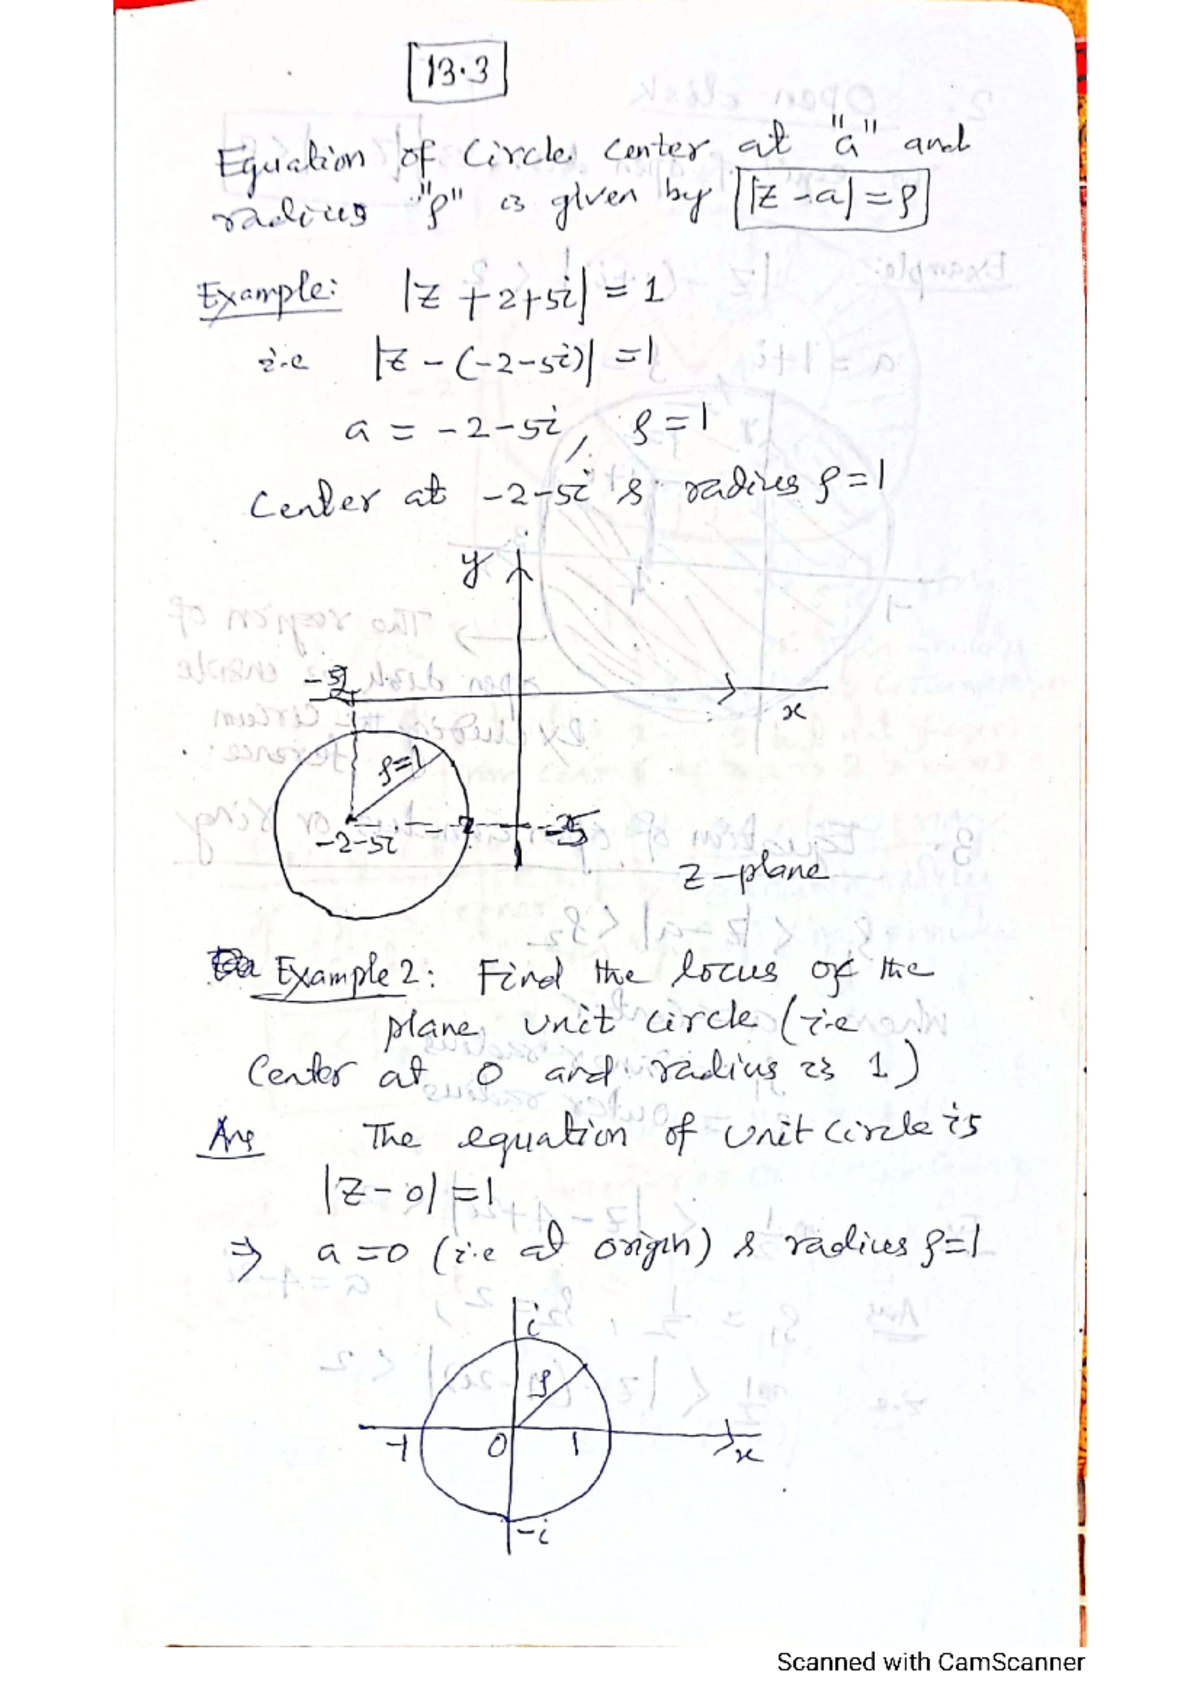 13.3
Equation of Circle center at "a" and
radius "ρ" is given by |z - a| = ρ
Example: |z + 2 + 5i| = 1
i.e |z - (-2 - 5i)| = 1
a = -2 - 5i, ρ = 1
Center at -2 - 5i & radius ρ = 1
y
x
ρ=1
-2-5i
-5
z-plane
Example 2: Find the locus of the
plane, unit circle (i.e
Center at 0 and radius is 1)
Ans The equation of unit circle is
|z - 0| = 1
⇒ a = 0 (i.e at origin) & radius ρ = 1
i
ρ
-1 0 1 x
-i
Scanned with CamScanner